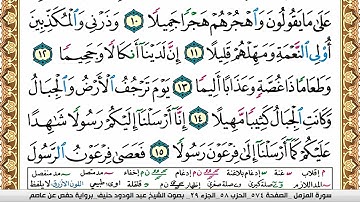 عَلَىٰ مَا يَقُولُونَ وَٱهْجُرْهُمْ هَجْرًا جَمِيلًا ١٠ وَذَرْنِى وَٱلْمُكَذِّبِينَ
أُو۟لِى ٱلنَّعْمَةِ وَمَهِّلْهُمْ قَلِيلًا ١١ إِنَّ لَدَيْنَآ أَنكَالًا وَجَحِيمًا ١٢
وَطَعَامًا ذَا غُصَّةٍ وَعَذَابًا أَلِيمًا ١٣ يَوْمَ تَرْجُفُ ٱلْأَرْضُ وَٱلْجِبَالُ
وَكَانَتِ ٱلْجِبَالُ كَثِيبًا مَّهِيلًا ١٤ إِنَّآ أَرْسَلْنَآ إِلَيْكُمْ رَسُولًا شَٰهِدًا
عَلَيْكُمْ كَمَآ أَرْسَلْنَآ إِلَىٰ فِرْعَوْنَ رَسُولًا ١٥ فَعَصَىٰ فِرْعَوْنُ ٱلرَّسُولَ
سورة المزمل الصفحة ٥٧٤ الحزب ٥٨ الجزء ٢٩ بصوت الشيخ عبد الودود حنيف برواية حفص عن عاصم